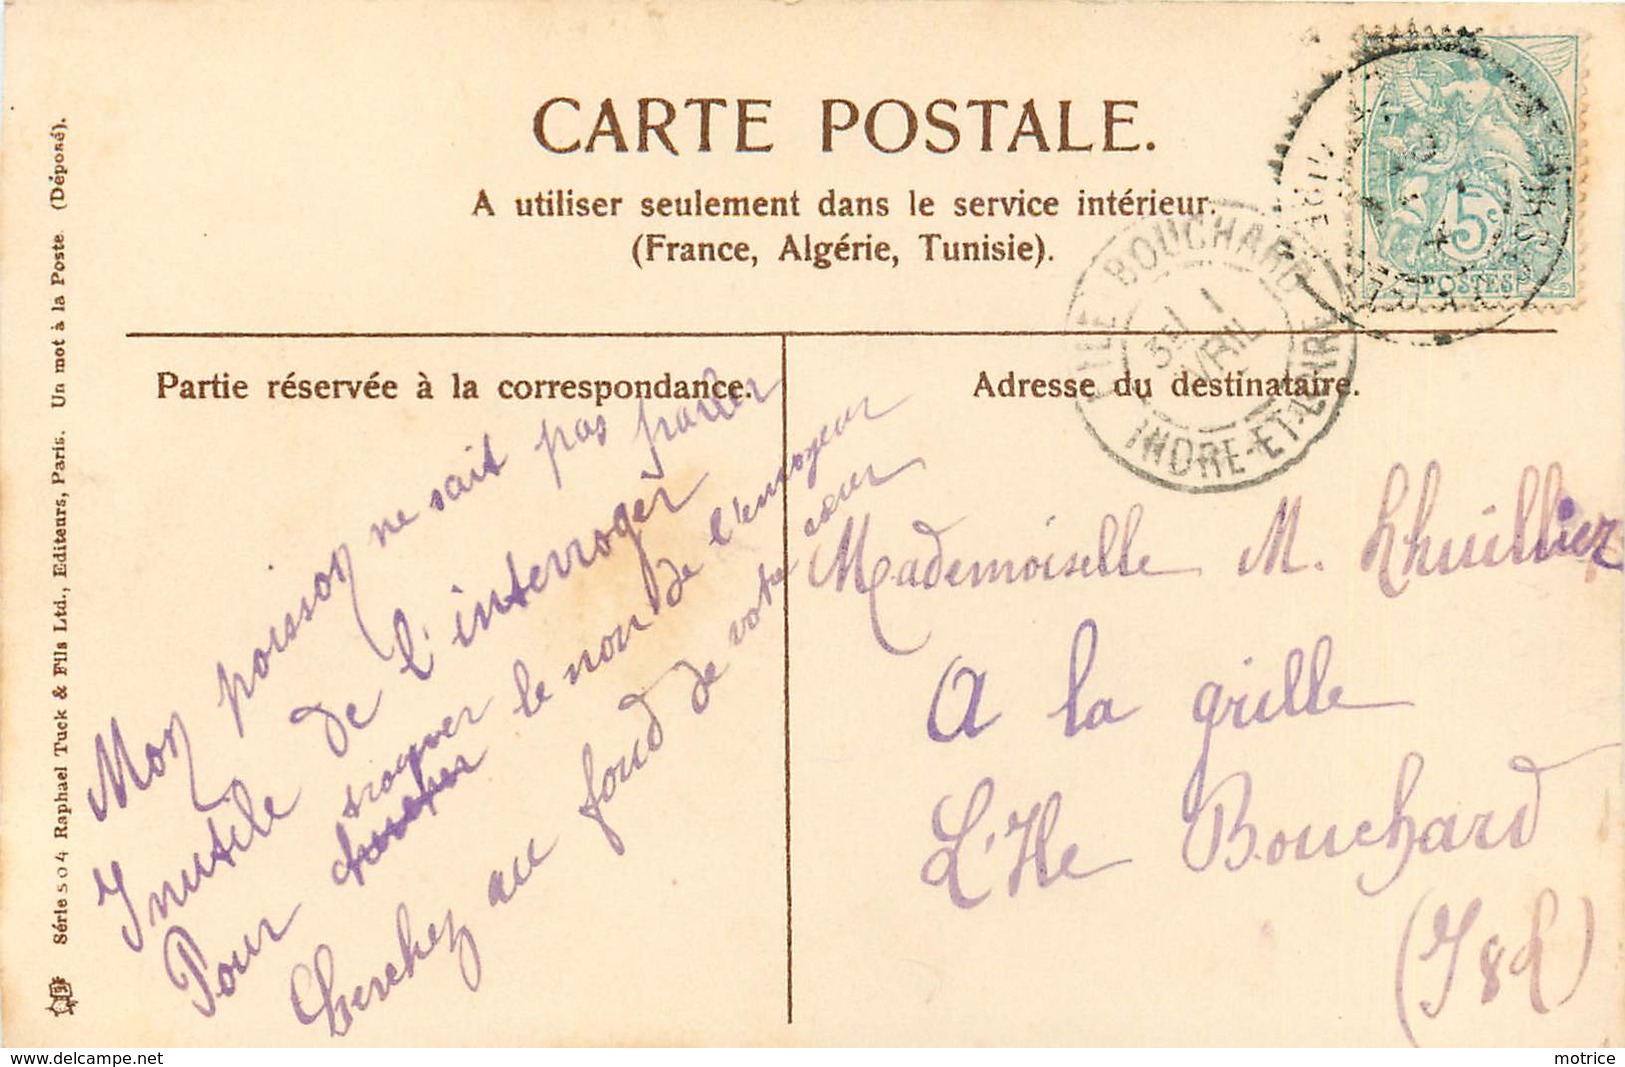 CARTE POSTALE.
A utiliser seulement dans le service intérieur.
(France, Algérie, Tunisie).
Partie réservée à la correspondance.
Adresse du destinataire.
Mon poisson ne sait pas parler
Inutile de l'interroger
Pour
le nom de l'envoyeur
Cherchez au fond de votre cœur
Mademoiselle M. Lhuillier
A la grille
L'Ile Bouchard
(I & L)
L'ILE BOUCHARD
1
AVRIL
INDRE-ET-LOIRE
5c
POSTES
Série 504 Raphael Tuck & Fils Ltd., Editeurs, Paris. Un mot à la Poste (Déposé).
motrice